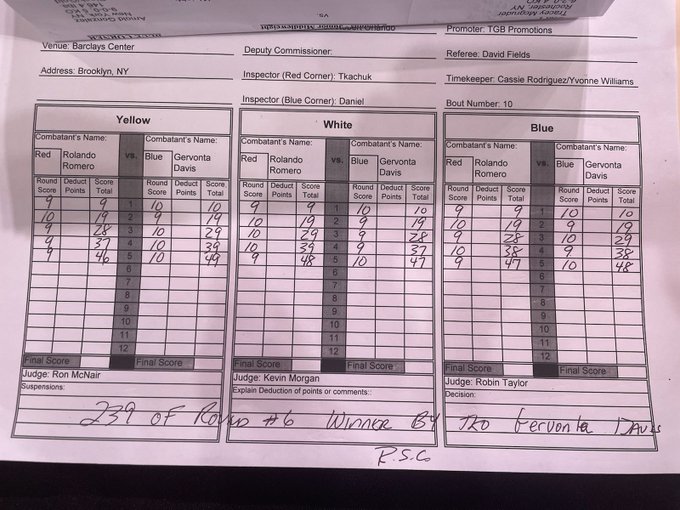 vs
Promoter: TGB Promotions
Venue: Barclays Center
Deputy Commissioner:
Referee: David Fields
Address: Brooklyn, NY
Inspector (Red Corner): Tkachuk
Timekeeper: Cassie Rodriguez/Yvonne Williams
Inspector (Blue Corner): Daniel
Bout Number: 10
Yellow
Combatant's Name: vs. Combatant's Name:
Red Rolando Romero Blue Gervonta Davis
Round Score Deduct Points Score Total Round Score Deduct Points Score Total
9 9 1 10 10
10 19 2 9 19
9 28 3 10 29
9 37 4 10 39
9 46 5 10 49
6
7
8
9
10
11
12
Final Score Final Score
Judge: Ron McNair
Suspensions:
White
Combatant's Name: vs. Combatant's Name:
Red Rolando Romero Blue Gervonta Davis
Round Score Deduct Points Score Total Round Score Deduct Points Score Total
9 9 1 10 10
10 19 2 9 19
10 29 3 9 28
10 39 4 9 37
9 48 5 10 47
6
7
8
9
10
11
12
Final Score Final Score
Judge: Kevin Morgan
Explain Deduction of points or comments::
Blue
Combatant's Name: vs. Combatant's Name:
Red Rolando Romero Blue Gervonta Davis
Round Score Deduct Points Score Total Round Score Deduct Points Score Total
9 9 1 10 10
10 19 2 9 19
9 28 3 10 29
10 38 4 9 38
9 47 5 10 48
6
7
8
9
10
11
12
Final Score Final Score
Judge: Robin Taylor
Decision:
239 OF Round #6 Winner By TKO Gervonta Davis
R.S.C.